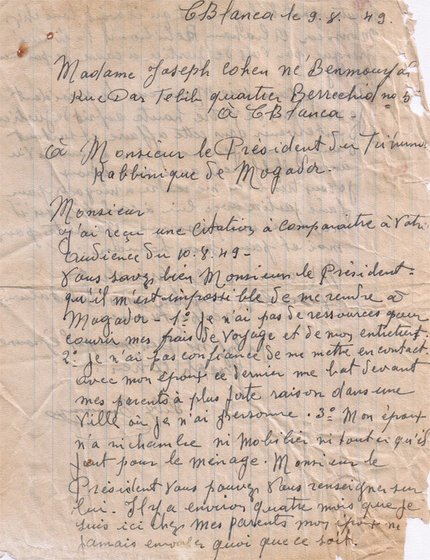 CBlanca le 9.8.49.
Madame Joseph Cohen né
Rue Dar Tebib quartier Berrechid no 5
à CBlanca -
à Monsieur le Président du Tribuna
Rabbinique de Mogador.
Monsieur
j'ai reçu une citation à comparaitre à votre
audience du 10.8.49 -
Vous savez bien Monsieur le Président
qu'il m'est impossible de me rendre à
Mogador - 1º Je n'ai pas de ressources pour
couvrir mes frais de voyage et de mon entretien
2º je n'ai pas confiance de me mettre en contact
avec mon époux ce dernier me bat devant
mes parents à plus forte raison dans une
ville où je n'ai personne. 3º Mon époux
n'a ni chambre ni mobilier ni tout ce qu'il
faut pour le ménage. Monsieur le
Président vous pouvez vous renseigner sur
lui. Il y a environ quatre mois que je
suis ici chez mes parents mon époux ne
jamais quoi que ce soit.